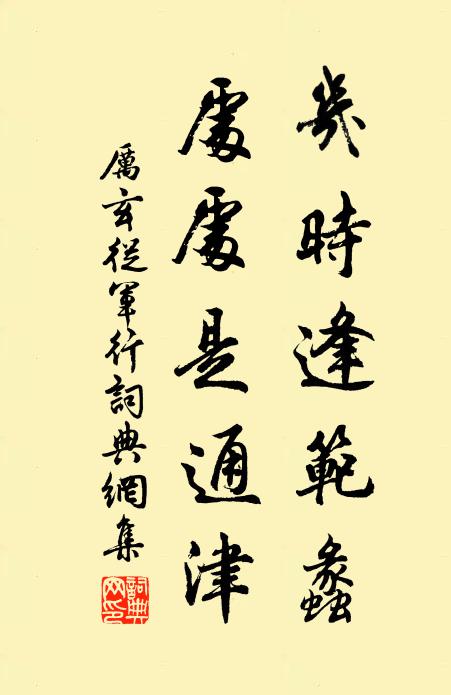 幾時逢範蠡
處處是通津
厲玄從軍行詞典網集
詞典
网印